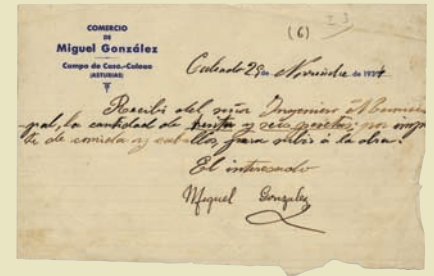 COMERCIO
DE
Miguel González
Campo de Caso.-Coleao
(ASTURIAS)
(6)
I 3
Culeado 29 de Noviembre de 1934
Recibí del señor Ingeniero
pal, la cantidad de treinta y seis pesetas; por impor
te de comida y caballos, para subir á la obra.
El interesado
Miguel Gonzalez